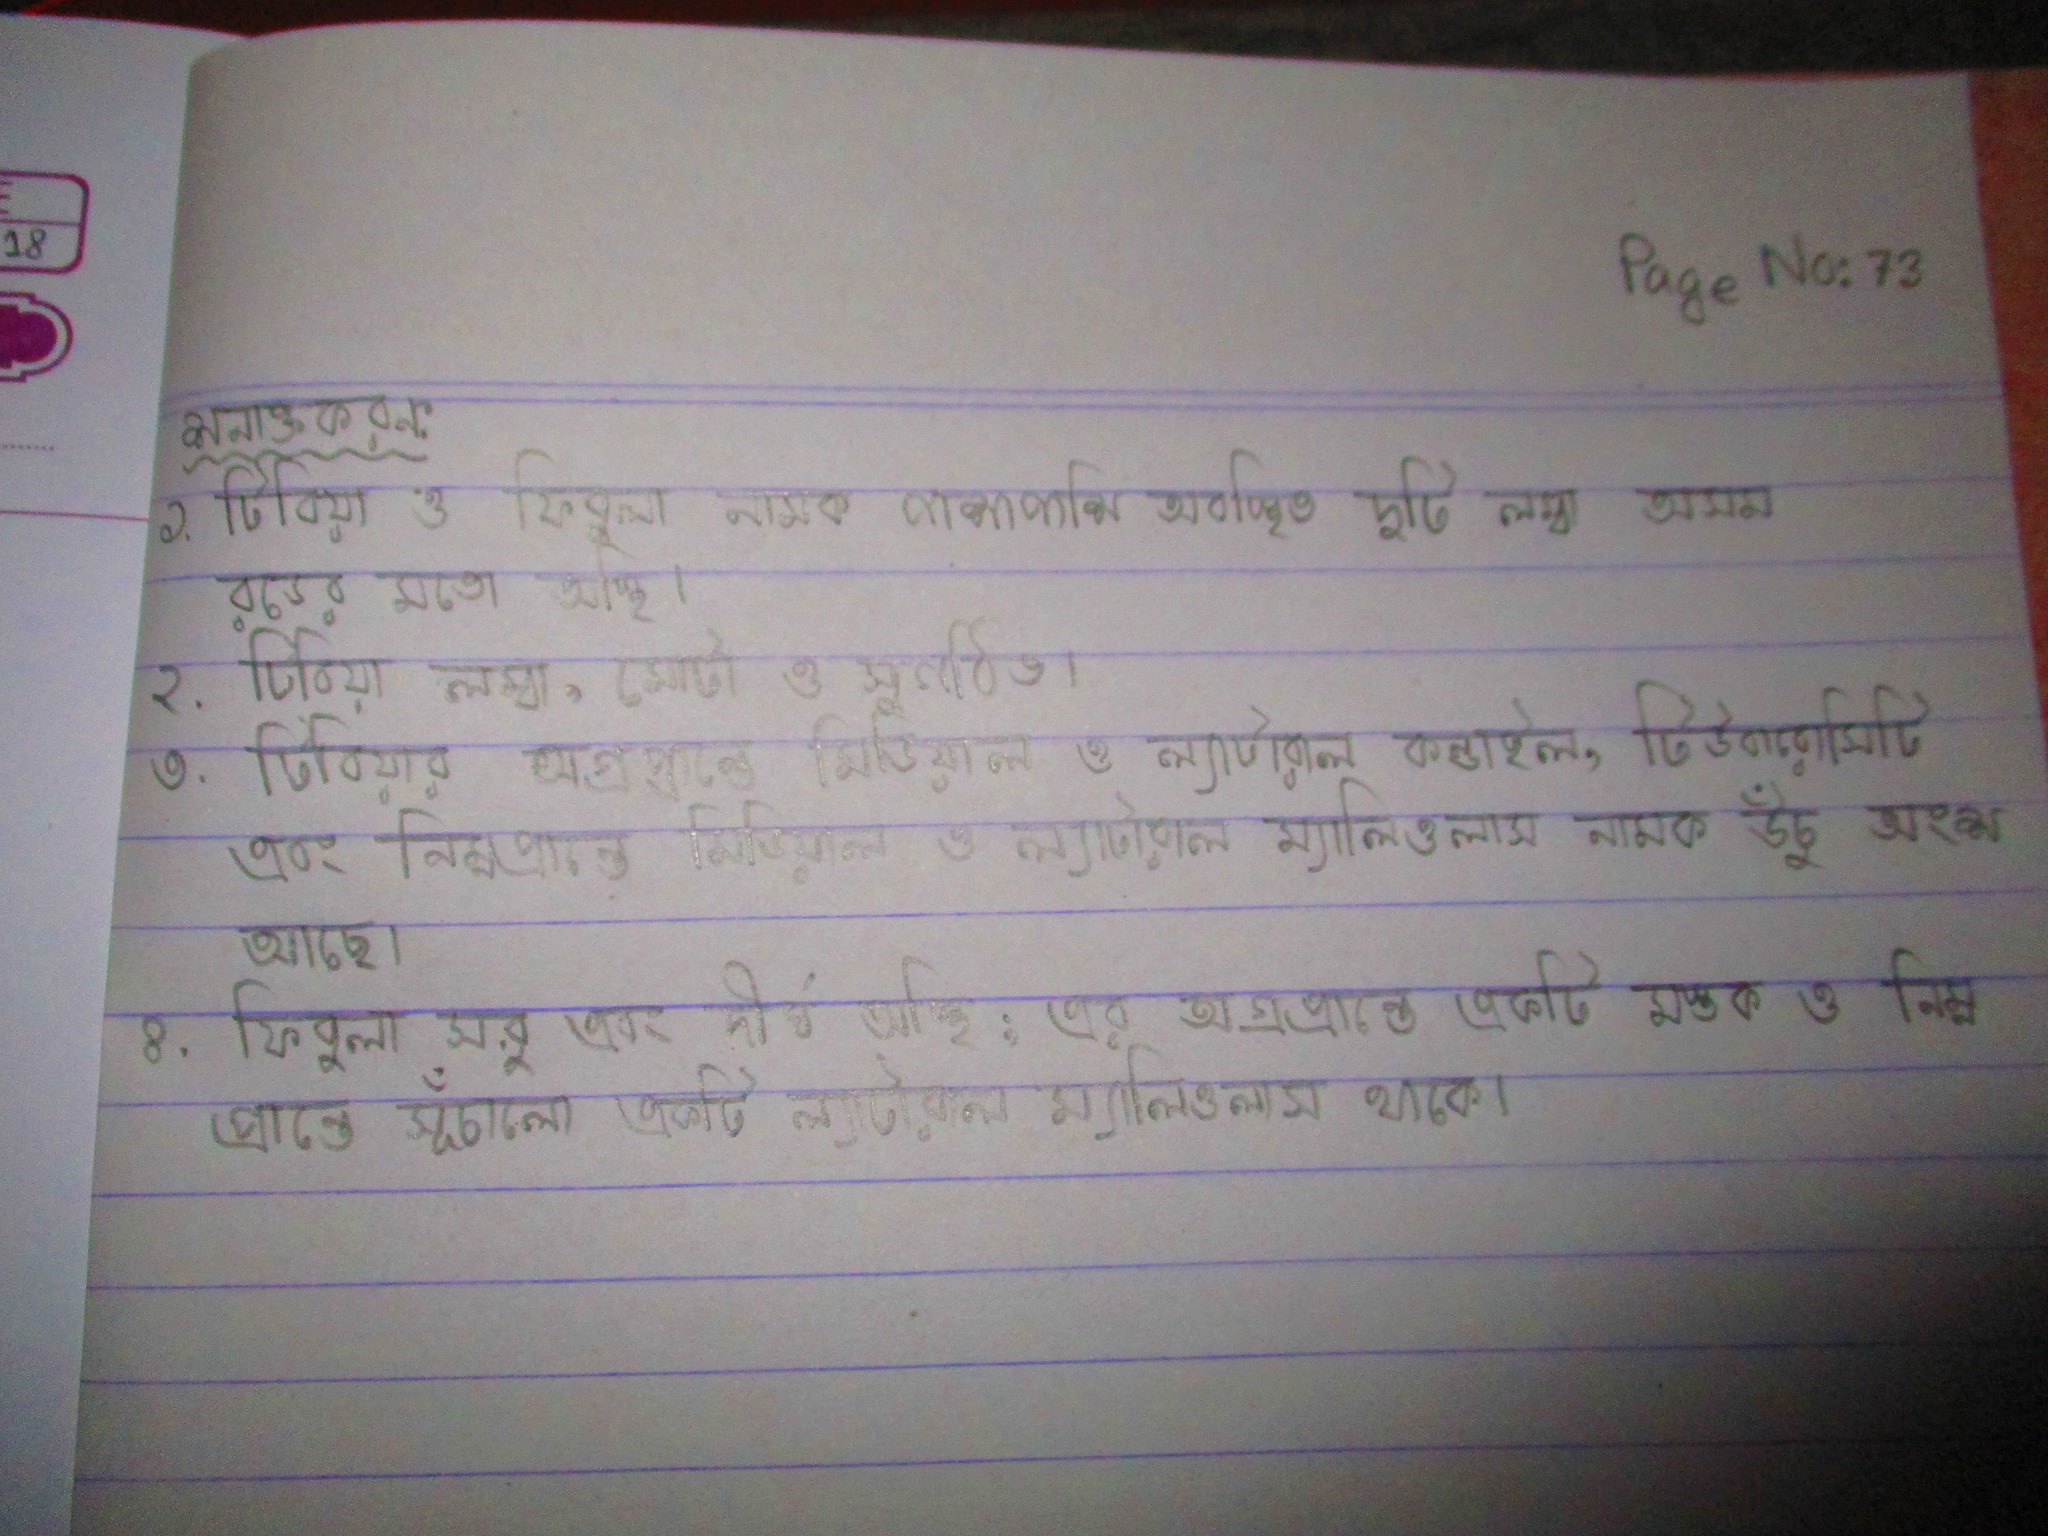 18
Page No: 73
শনাক্তকরন:
১. টিবিয়া ও ফিবুলা নামক পাশাপাশি অবস্থিত দুটি লম্বা অসম
রডের মতো অস্থি।
২. টিবিয়া লম্বা, মোটা ও সুগঠিত।
৩. টিবিয়ার অগ্রপ্রান্তে মিডিয়াল ও ল্যাটারাল কন্ডাইল, টিউবারোসিটি
এবং নিম্নপ্রান্তে মিডিয়াল ও ল্যাটারাল ম্যালিওলাস নামক উঁচু অংশ
আছে।
৪. ফিবুলা সরু এবং দীর্ঘ অস্থি; এর অগ্রপ্রান্তে একটি মস্তক ও নিম্ন
প্রান্তে সূঁচালো একটি ল্যাটারাল ম্যালিওলাস থাকে।